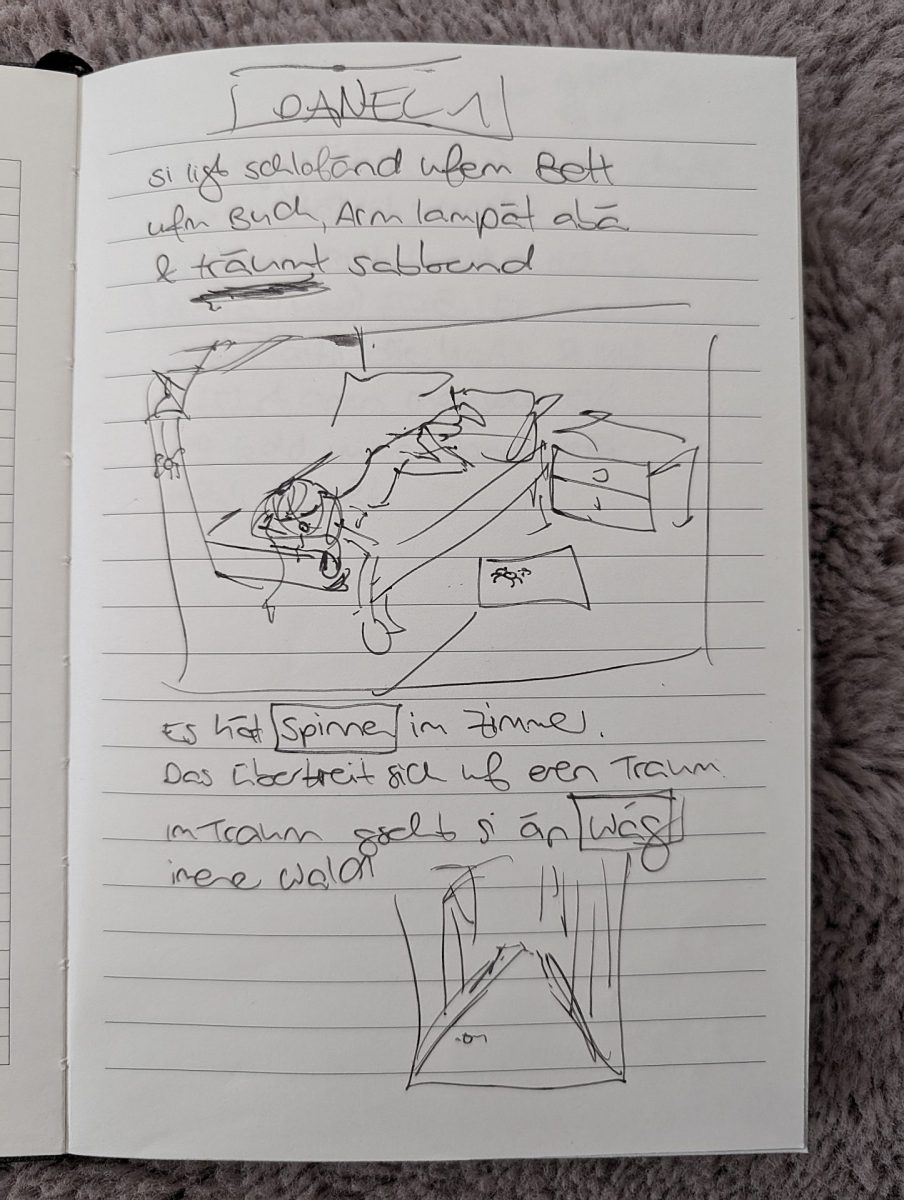 PANEL 1
si ligt schlofānd ufem Bett
ufm Buch, Arm lampāt abā
& trāumt sabbernd
Es hāt Spinne im Zimmer.
Das übertreit sich uf eren Traum.
im Traum gseht si ān Wāg
inene Wald